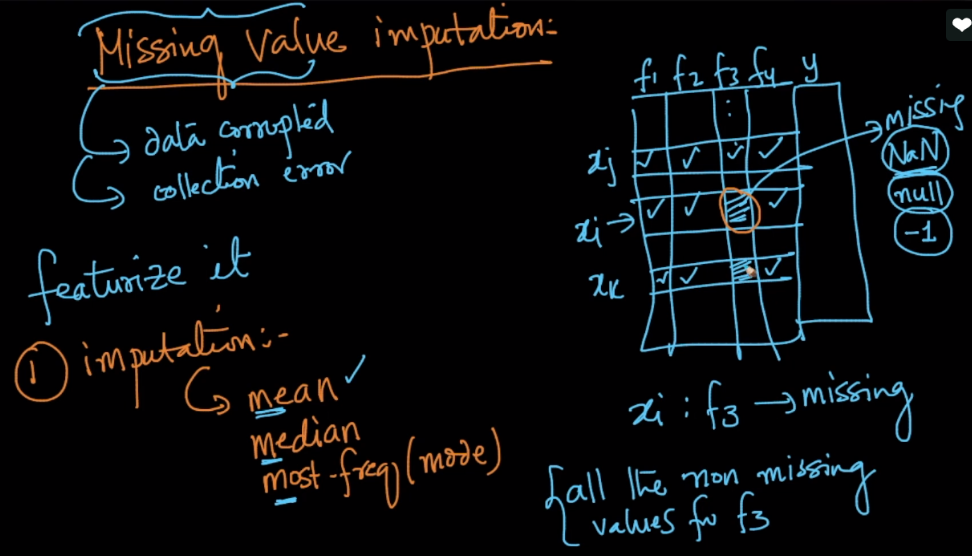 Missing Value imputation:-
data corrupted
collection error
featurize it
① imputation:-
mean ✓
median
most-freq (mode)
f1 f2 f3 f4 y
xj ✓ ✓ ✓ ✓
xi → ✓ ✓ ✓
xk ✓ ✓ ✓
missing
NaN
null
-1
xi : f3 → missing
{all the non missing
values for f3